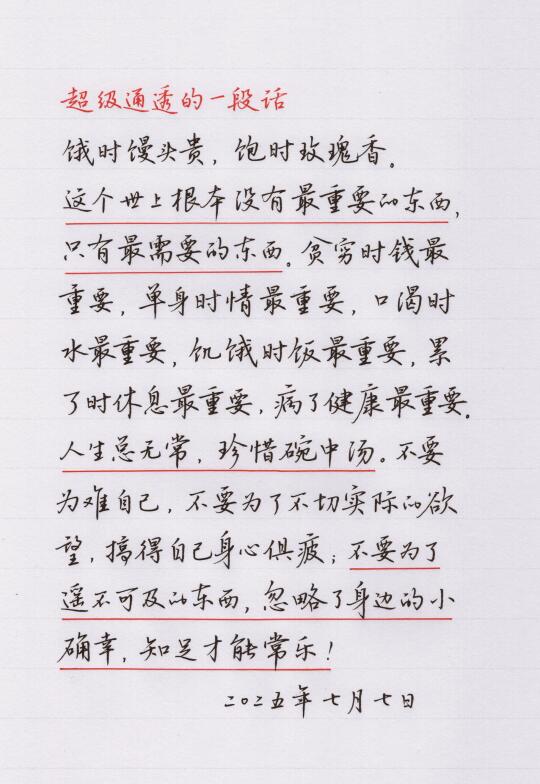 超级通透的一段话
饿时馒头贵，饱时玫瑰香。
这个世上根本没有最重要的东西，
只有最需要的东西。贫穷时钱最
重要，单身时情最重要，口渴时
水最重要，饥饿时饭最重要，累
了时休息最重要，病了健康最重要。
人生总无常，珍惜碗中汤。不要
为难自己，不要为了不切实际的欲
望，搞得自己身心俱疲；不要为了
遥不可及的东西，忽略了身边的小
确幸，知足才能常乐！
二〇二五年七月七日